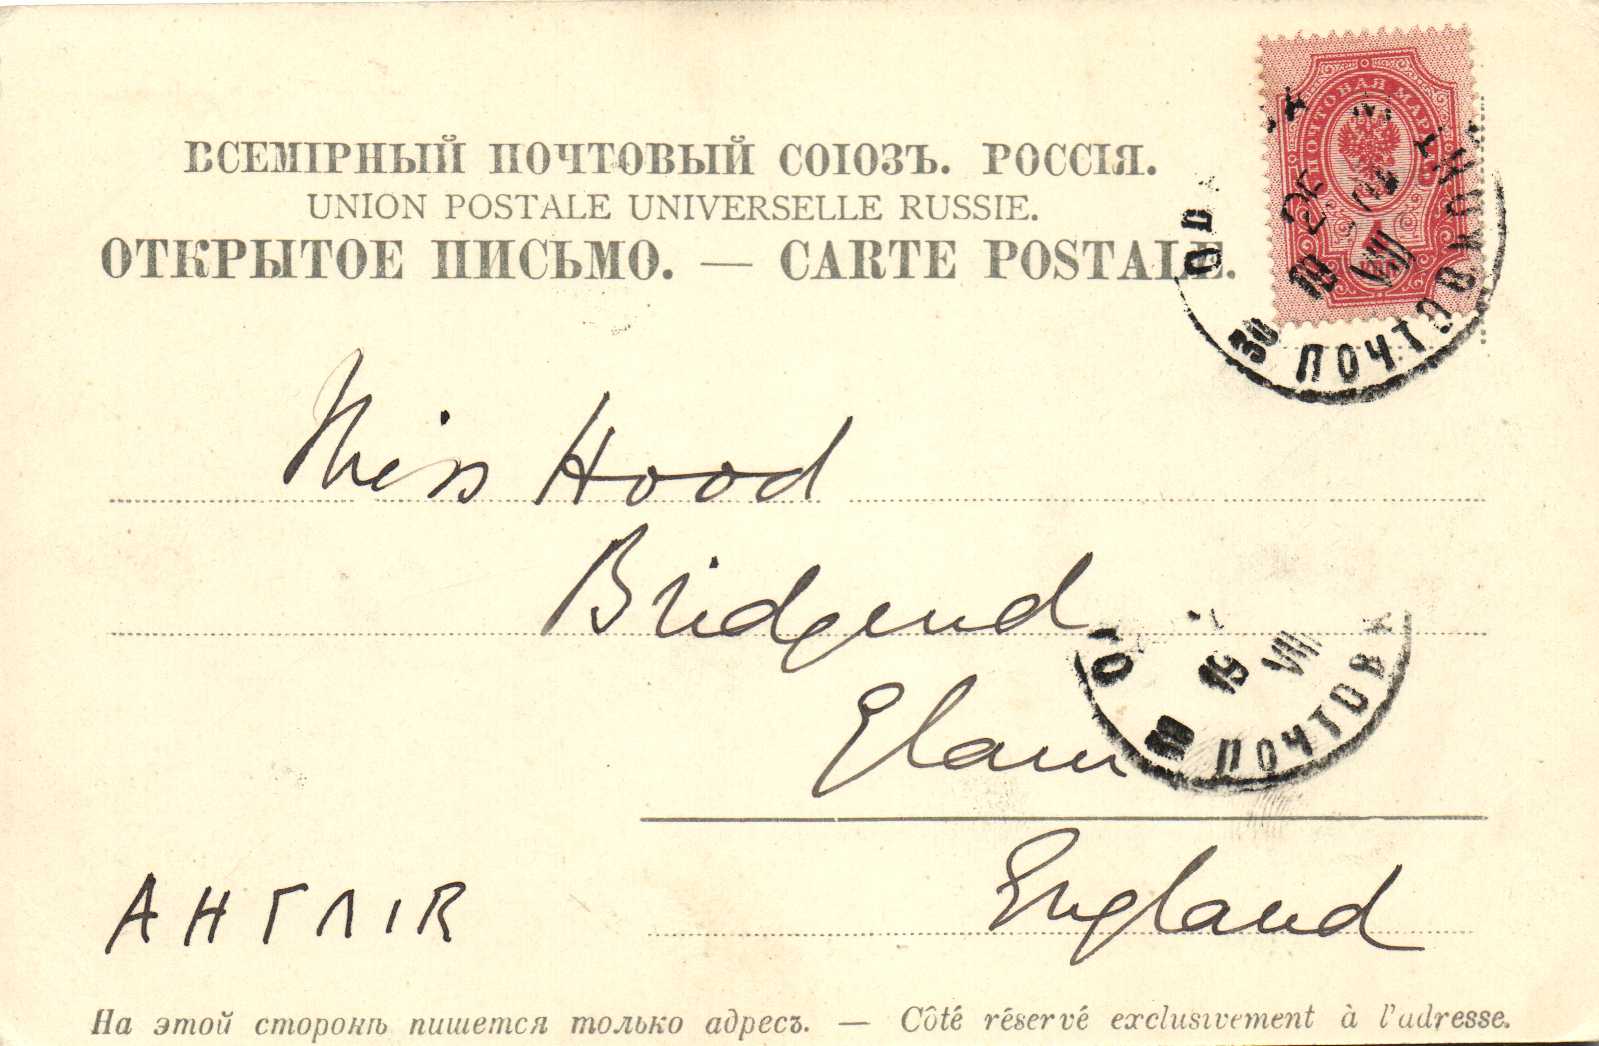 ВСЕМІРНЫЙ ПОЧТОВЫЙ СОЮЗЪ. РОССІЯ.
UNION POSTALE UNIVERSELLE RUSSIE.
ОТКРЫТОЕ ПИСЬМО. — CARTE POSTALE.
ПОЧТОВАЯ МАРКА
30 ПОЧТОВ
19 VIII
Miss Hood
Bridgend
Glam
England
19 VIII
10 ПОЧТОВ
АНГЛІЯ
На этой сторонѣ пишется только адресъ. — Côté réservé exclusivement à l'adresse.